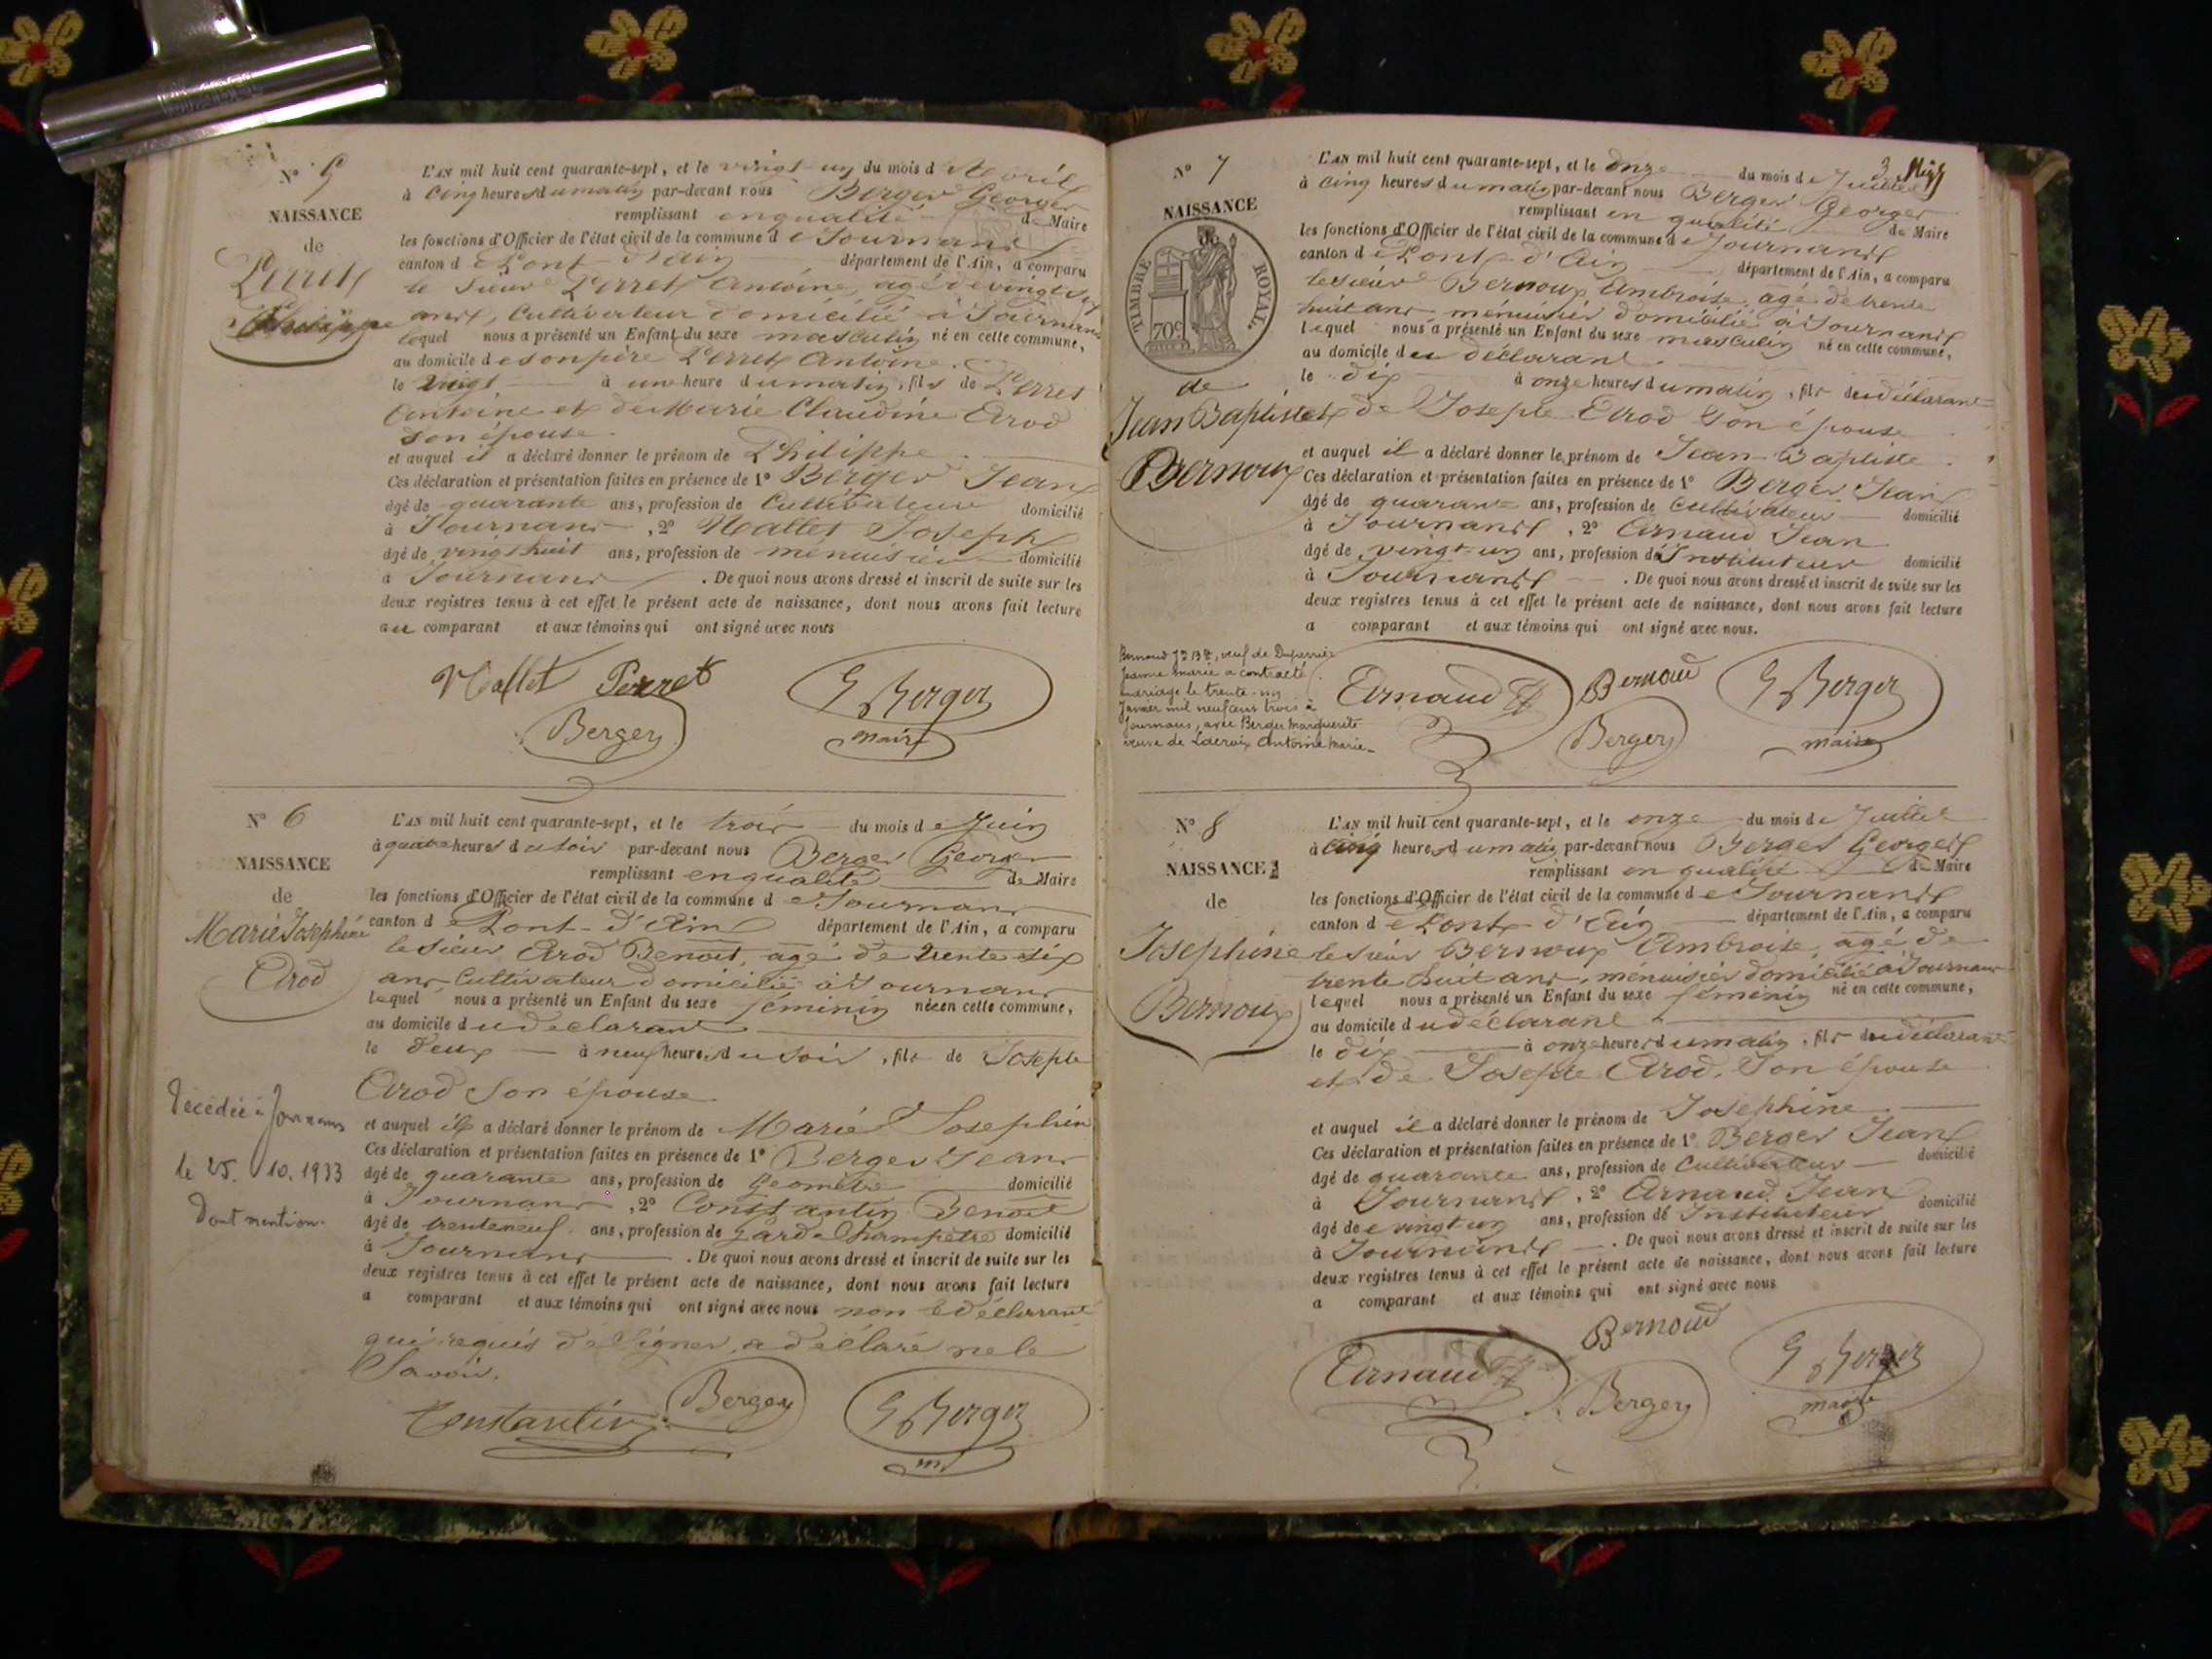 N° 5
NAISSANCE
de
Perret
Philippe
L'AN mil huit cent quarante-sept, et le vingt un du mois d Avril
à cinq heures du matin par-devant nous Berger Georges
remplissant en qualité de Maire
les fonctions d'Officier de l'état civil de la commune de Journans
canton de Pont-d'ain département de l'Ain, a comparu
le Sieur Perret Antoine, agé de vingt
ans, Cultivateur domicilié à Journans
lequel nous a présenté un Enfant du sexe masculin né en cette commune,
au domicile de son père Perret Antoine.
le vingt à une heure du matin, fils de Perret
Antoine et de Marie Claudine Arod
son épouse.
et auquel il a déclaré donner le prénom de Philippe
Ces déclaration et présentation faites en présence de 1° Berger Jean
âgé de quarante ans, profession de Cultivateur domicilié
à Journans, 2° Mallet Joseph
âgé de vingt huit ans, profession de menuisier domicilié
à Journans. De quoi nous avons dressé et inscrit de suite sur les
deux registres tenus à cet effet le présent acte de naissance, dont nous avons fait lecture
au comparant et aux témoins qui ont signé avec nous
Mallet Perret G Berger
Berger maire
N° 6
NAISSANCE
de
Marie Josephine
Arod
L'AN mil huit cent quarante-sept, et le trois du mois de Juin
à quatre heures du soir par-devant nous Berger Georges
remplissant en qualité de Maire
les fonctions d'Officier de l'état civil de la commune de Journans
canton de Pont-d'Ain département de l'Ain, a comparu
le sieur Arod Benoit, agé de trente six
ans Cultivateur domicilié à Journans
lequel nous a présenté un Enfant du sexe féminin née en cette commune,
au domicile du declarant
le deux à neuf heures du soir, fils de Josephe
Arod son épouse
et auquel il a déclaré donner le prénom de Marie Josephine
Ces déclaration et présentation faites en présence de 1° Berger Jean
âgé de quarante ans, profession de Géomètre domicilié
à Journans, 2° Constantin Benoit
âgé de trente neuf ans, profession de garde Champêtre domicilié
à Journans. De quoi nous avons dressé et inscrit de suite sur les
deux registres tenus à cet effet le présent acte de naissance, dont nous avons fait lecture
a comparant et aux témoins qui ont signé avec nous non le déclarant
qui requis de signer, a déclaré ne le
Savoir.
Constantin Berger G Berger
m
Décédée à Journans
le 25. 10. 1933
Dont mention.
N° 7
NAISSANCE
TIMBRE ROYAL.
70c
de
Jean Baptiste
Bernoux
L'AN mil huit cent quarante-sept, et le onze du mois de Juillet
à cinq heures du matin par-devant nous Berger Georges
remplissant en qualité de Maire
les fonctions d'Officier de l'état civil de la commune de Journans
canton de Pont-d'Ain département de l'Ain, a comparu
le sieur Bernoux Ambroise, agé de trente
huit ans, menuisier domicilié à Journans
lequel nous a présenté un Enfant du sexe masculin né en cette commune,
au domicile du déclarant
le dix à onze heures du matin, fils du déclarant
et de Josephe Arod Son épouse
et auquel il a déclaré donner le prénom de Jean-Baptiste
Ces déclaration et présentation faites en présence de 1° Berger Jean
âgé de quarante ans, profession de Cultivateur domicilié
à Journans, 2° Arnaud Jean
âgé de vingt-un ans, profession d'Instituteur domicilié
à Journans. De quoi nous avons dressé et inscrit de suite sur les
deux registres tenus à cet effet le présent acte de naissance, dont nous avons fait lecture
a comparant et aux témoins qui ont signé avec nous.
Arnaud Bernoud G Berger
Berger maire
Bernoud Jn Bte, veuf de Duperrier
Jeanne Marie a contracté
mariage le trente-un
Janvier mil neuf cent trois à
Journans, avec Berger Marguerite
veuve de Lacroix Antoine Marie
N° 8
NAISSANCE
de
Josephine
Bernoux
L'AN mil huit cent quarante-sept, et le onze du mois de Juillet
à cinq heures du matin par-devant nous Berger Georges
remplissant en qualité de Maire
les fonctions d'Officier de l'état civil de la commune de Journans
canton de Pont-d'Ain département de l'Ain, a comparu
le sieur Bernoux Ambroise, agé de
trente huit ans, menuisier domicilié à Journans
lequel nous a présenté un Enfant du sexe féminin né en cette commune,
au domicile du déclarant
le dix à onze heures du matin, fils du déclarant
et de Josephe Arod, Son épouse
et auquel il a déclaré donner le prénom de Josephine
Ces déclaration et présentation faites en présence de 1° Berger Jean
âgé de quarante ans, profession de Cultivateur domicilié
à Journans, 2° Arnaud Jean
âgé de vingt un ans, profession d'Instituteur domicilié
à Journans. De quoi nous avons dressé et inscrit de suite sur les
deux registres tenus à cet effet le présent acte de naissance, dont nous avons fait lecture
a comparant et aux témoins qui ont signé avec nous
Arnaud Bernoud G Berger
Berger maire